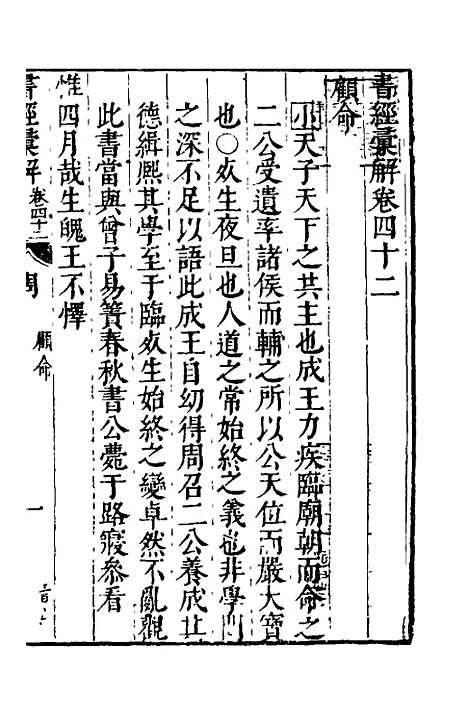 書經彙解卷四十二
顧命
小天子天下之共主也成王力疾臨廟朝而命之
二公受遺率諸侯而輔之所以公天位而嚴大寶
也○死生夜旦也人道之常始終之義也非學問
之深不足以語此成王自幼得周召二公養成其
德緝熙其學至于臨死生始終之變卓然不亂觀
此書當與曾子易簀春秋書公薨于路寢參看
惟四月哉生魄王不懌
書經彙解 卷四十二 周 顧命 一